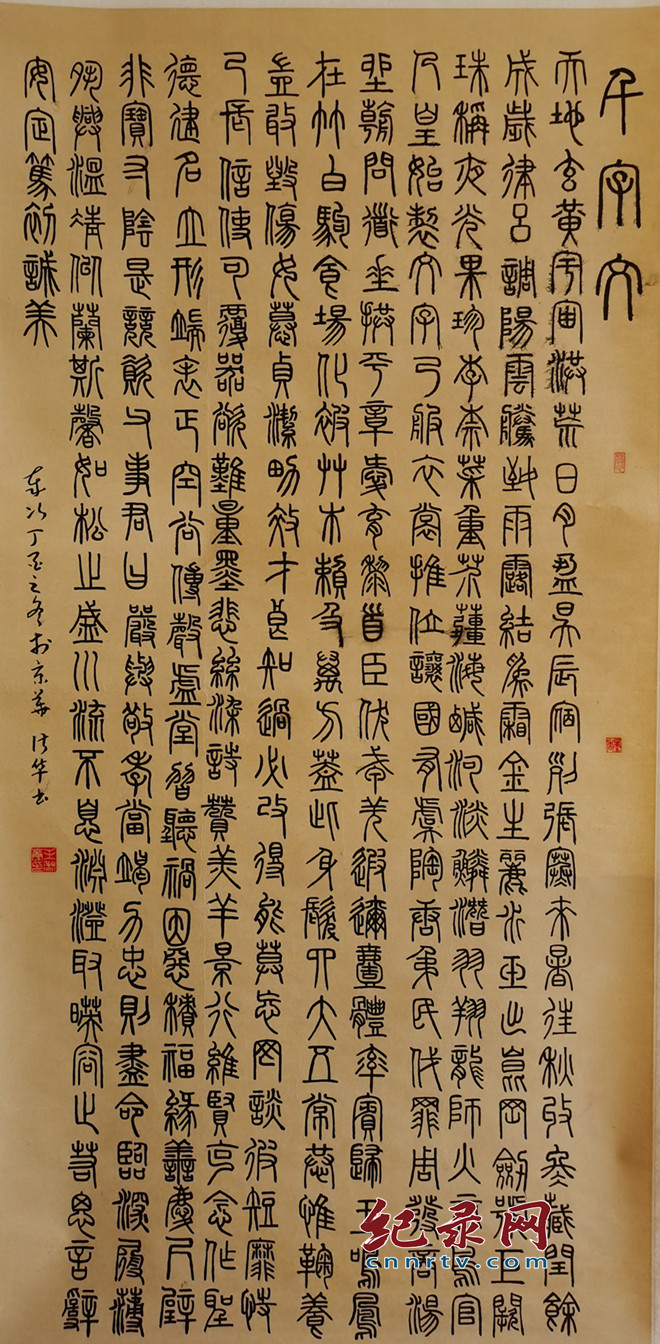 千字文
天地玄黃宇宙洪荒日月盈昃辰宿列張寒來暑往秋收冬藏閏餘
成歲律呂調陽雲騰致雨露結為霜金生麗水玉出崑岡劍號巨闕
珠稱夜光果珍李柰菜重芥薑海鹹河淡鱗潛羽翔龍師火帝鳥官
人皇始製文字乃服衣裳推位讓國有虞陶唐弔民伐罪周發商湯
坐朝問道垂拱平章愛育黎首臣伏戎羌遐邇壹體率賓歸王鳴鳳
在竹白駒食場化被草木賴及萬方蓋此身髮四大五常恭惟鞠養
豈敢毀傷女慕貞潔男效才良知過必改得能莫忘罔談彼短靡恃
己長信使可覆器欲難量墨悲絲染詩讚羔羊景行維賢克念作聖
德建名立形端表正空谷傳聲虛堂習聽禍因惡積福緣善慶尺璧
非寶寸陰是競資父事君曰嚴與敬孝當竭力忠則盡命臨深履薄
夙興溫凊似蘭斯馨如松之盛川流不息淵澄取映容止若思言辭
安定篤初誠美
歲次丁酉之冬於京華 华书
纪录网
cnnrtv.com